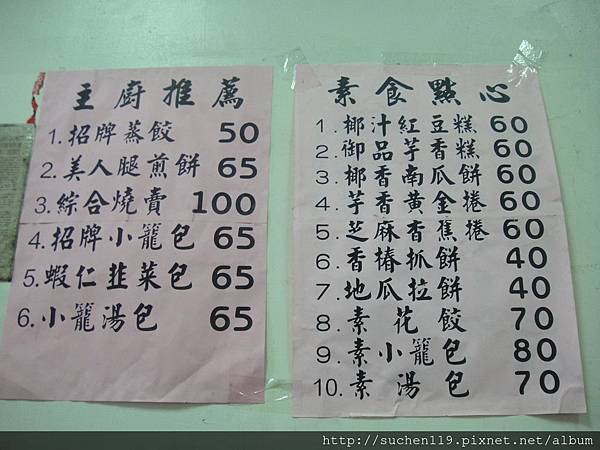 主廚推薦
1.招牌蒸餃 50
2.美人腿煎餅 65
3.綜合燒賣 100
4.招牌小籠包 65
5.蝦仁韭菜包 65
6.小籠湯包 65
素食點心
1.椰汁紅豆糕 60
2.御品芋香糕 60
3.椰香南瓜餅 60
4.芋香黃金捲 60
5.芝麻香蕉捲 60
6.香椿抓餅 40
7.地瓜拉餅 40
8.素花餃 70
9.素小籠包 80
10.素湯包 70
http://suchen119.pixnet.net/album